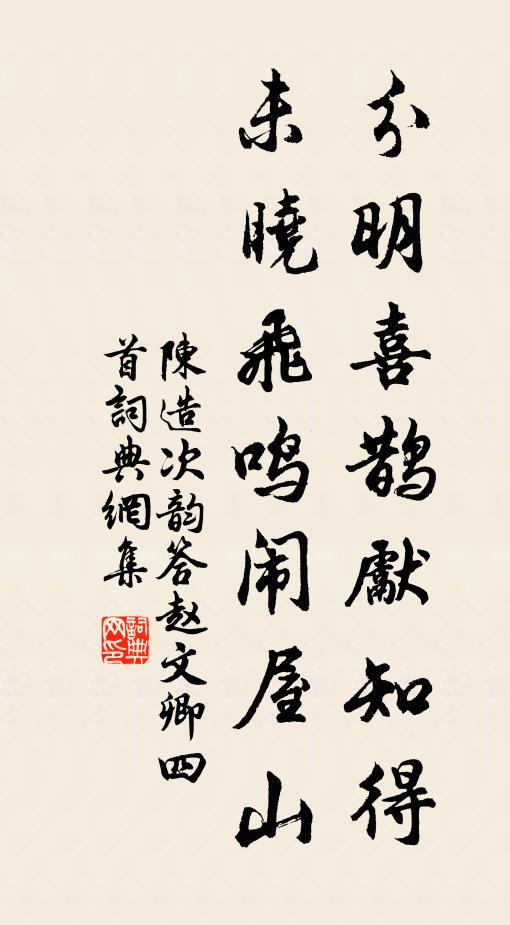 分明喜鹊獻知得
未曉飛鳴闹屋山
陳造次韵答赵文卿四
首詞典網集
詞典網印